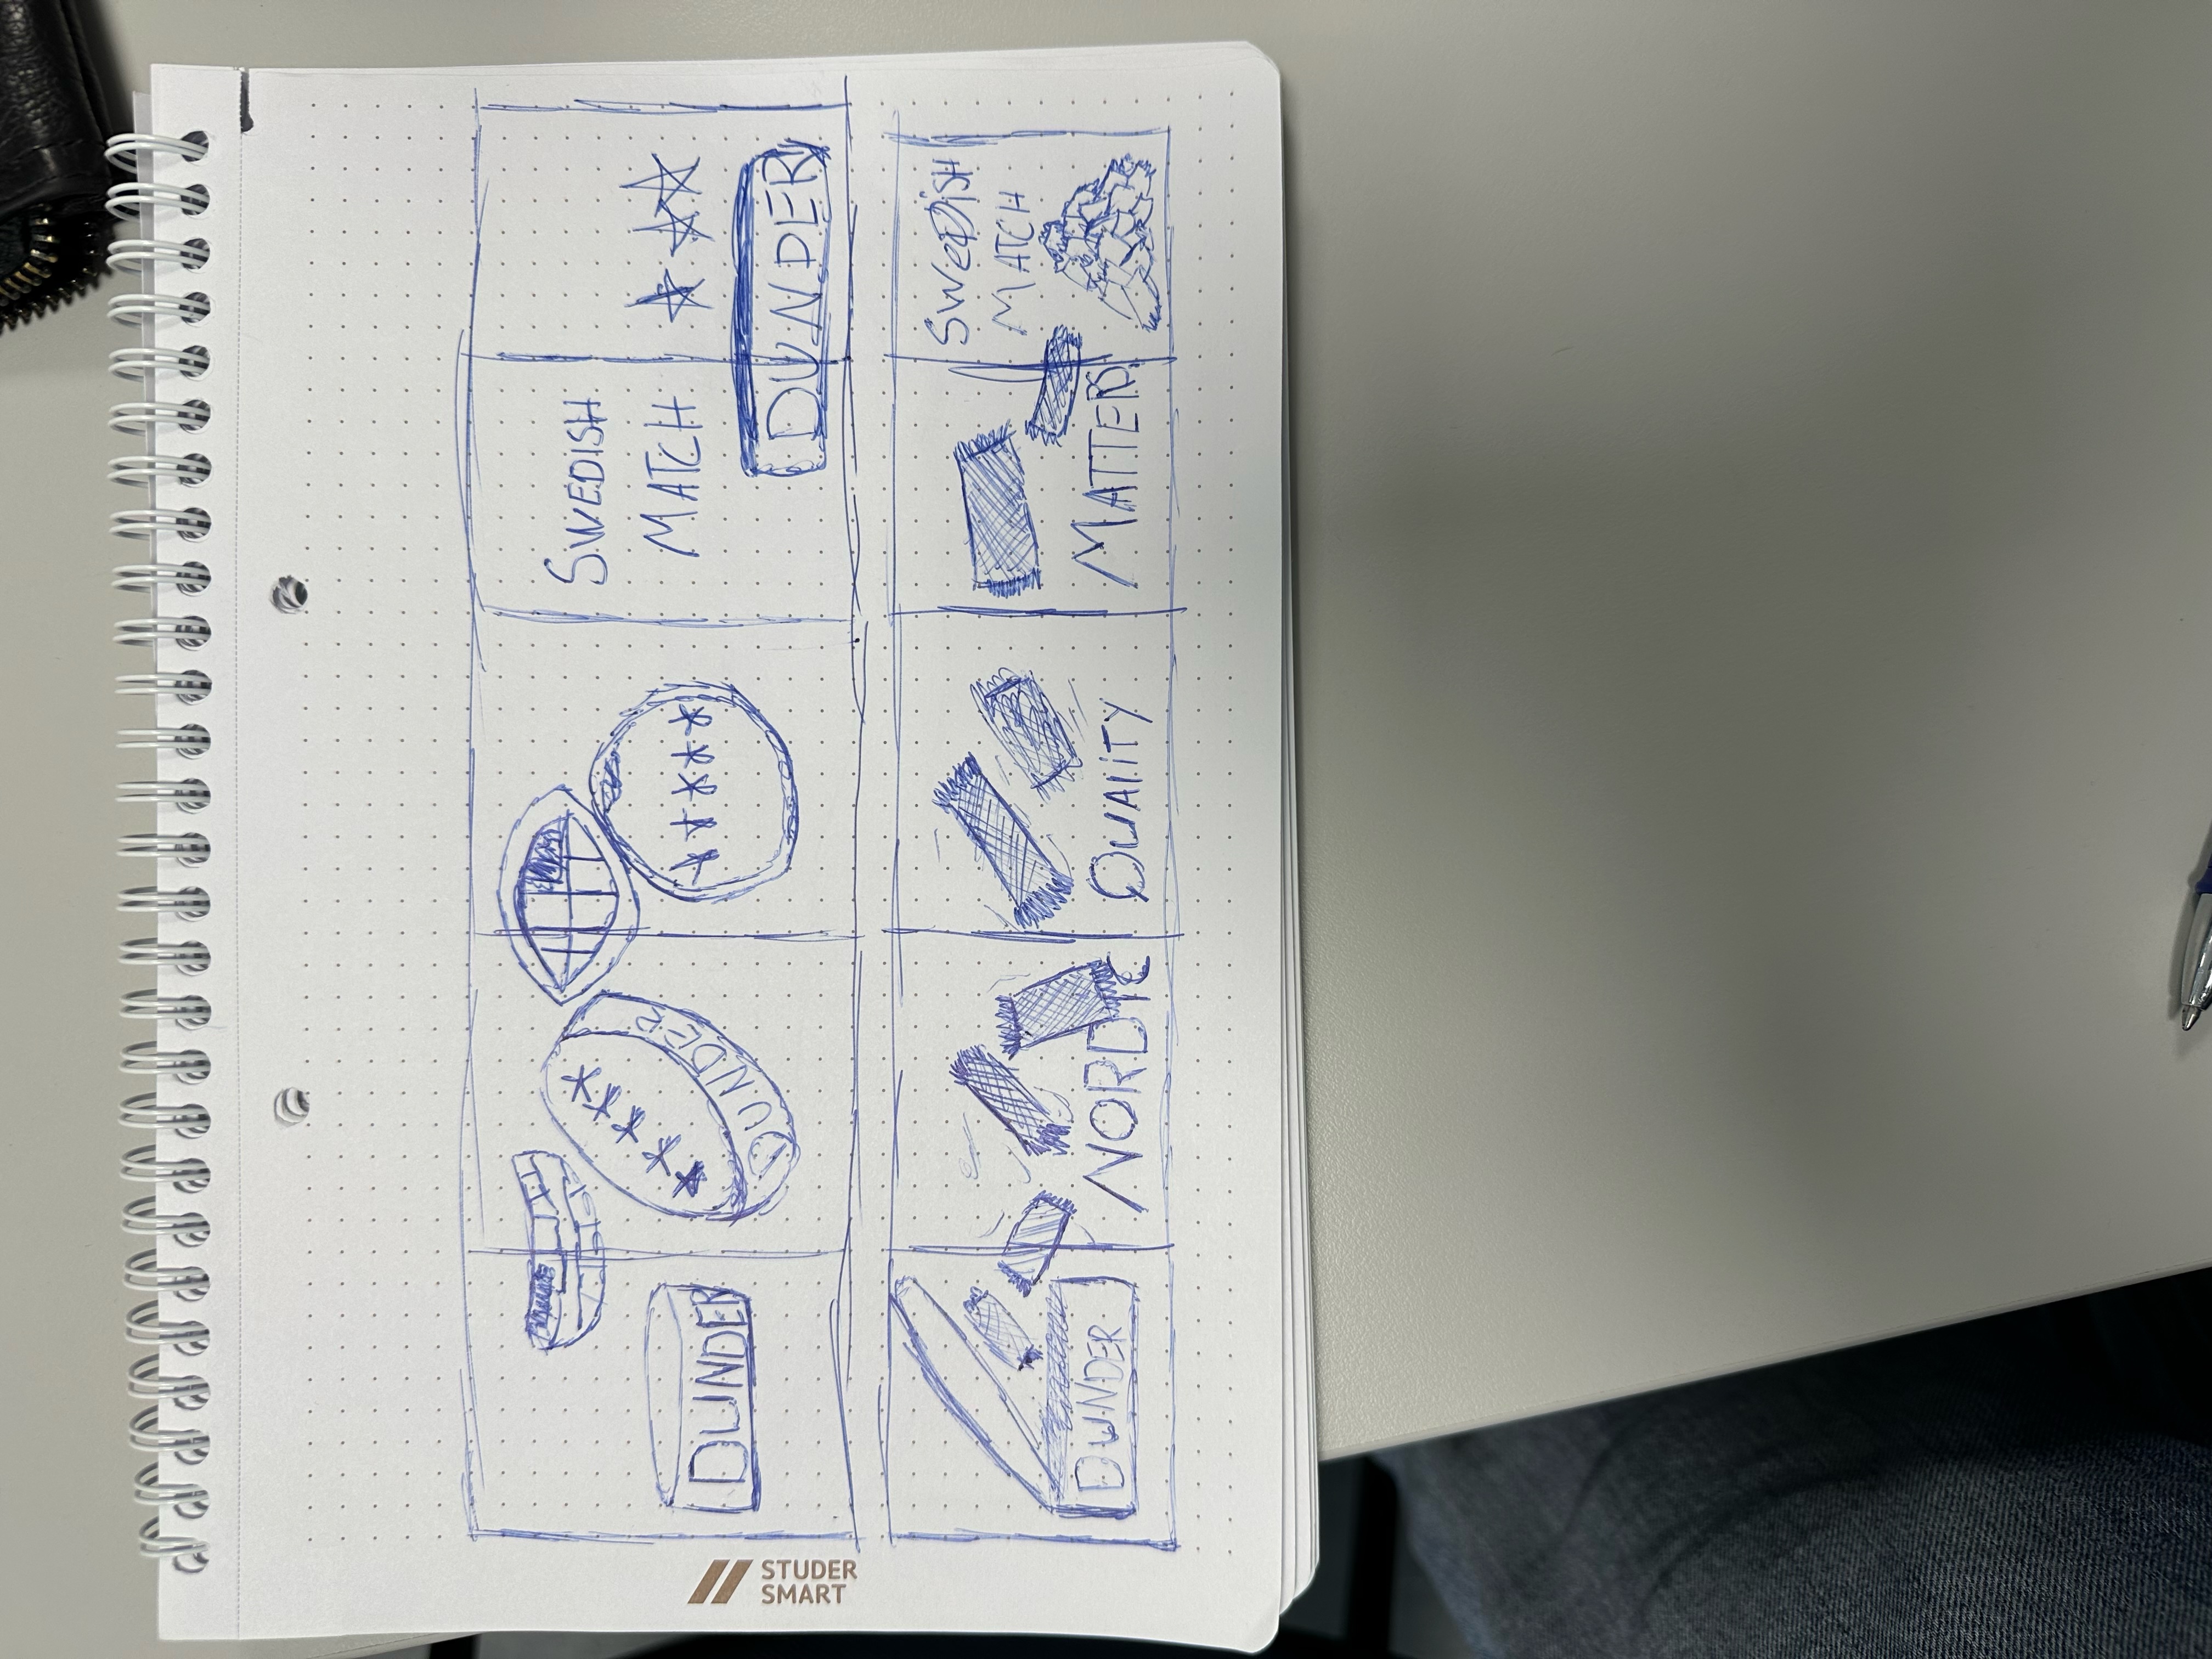 STUDER
SMART
DUNDER
DUNDER
SWEDISH
MATCH
DUNDER
DUNDER
NORDIC
QUALITY
MATTERS
SWEDISH
MATCH